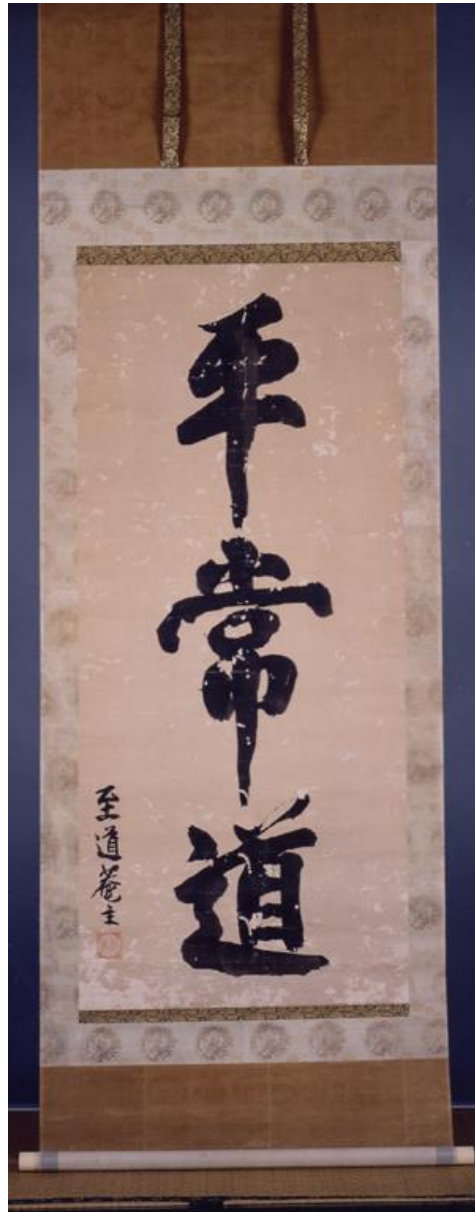 平常道
至道菴主